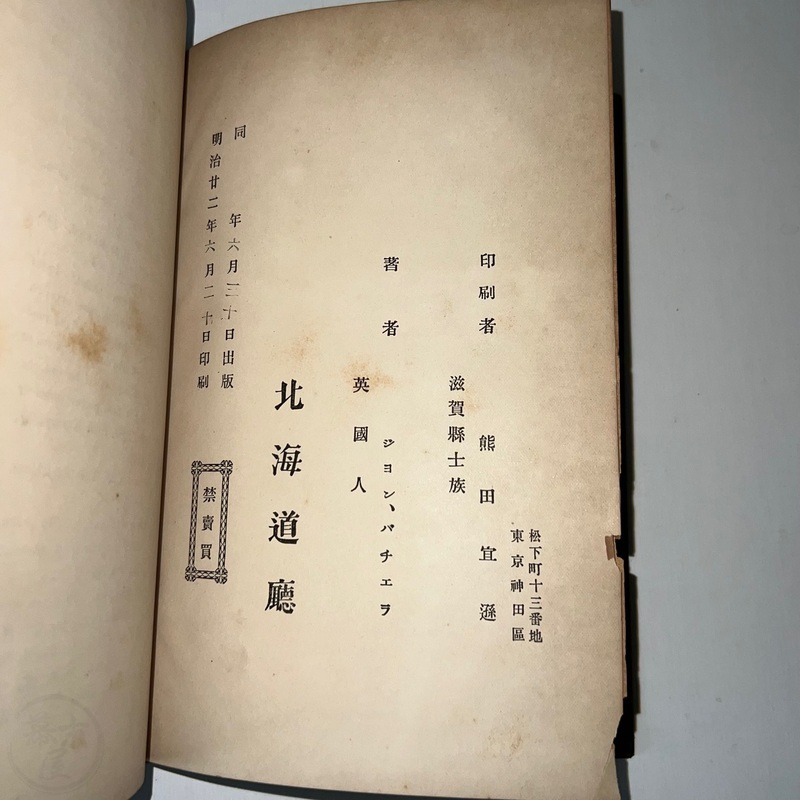 明治廿二年六月二十日印刷
同年六月三十日出版
禁賣買
北海道廳
英國人
著者 ジヨン、バチエヲ
滋賀縣士族
印刷者 熊田宜遜
東京神田區
松下町十三番地